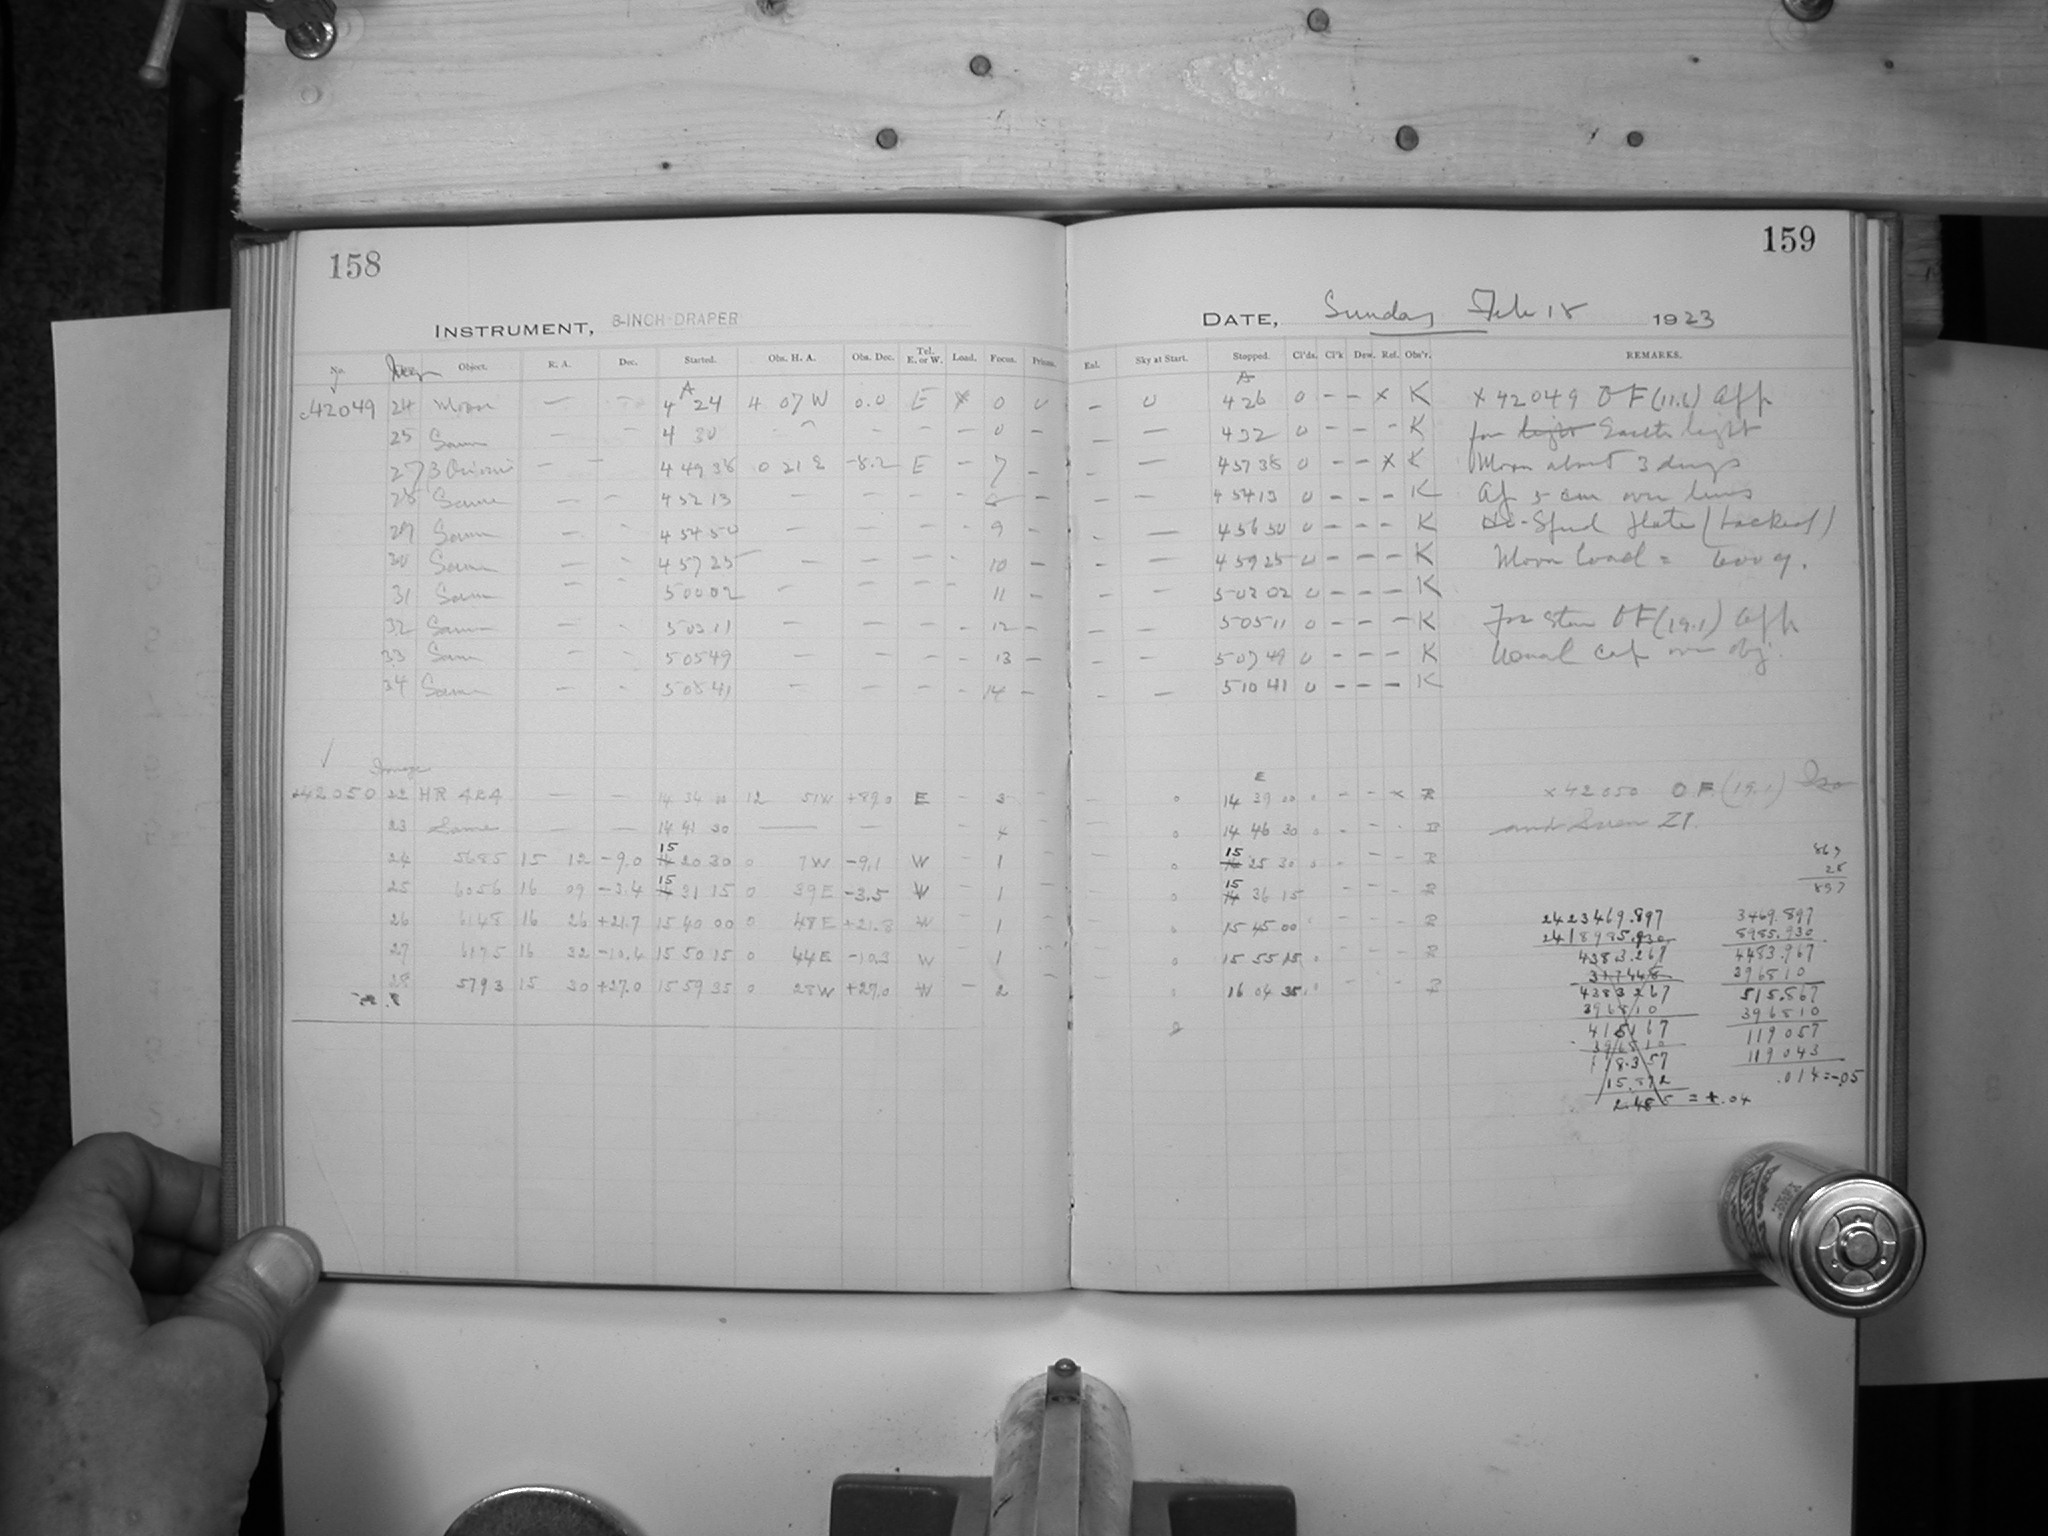 158
159
INSTRUMENT, 8-INCH-DRAPER
DATE, Sunday Feb 18 1923
No. Image Object. R. A. Dec. Started. Obs. H. A. Obs. Dec. Tel. E. or W. Load. Focus. Prisms.
Exl. Sky at Start. Stopped. Cl'ds. Cl'k Dew. Ref. Obs'r. REMARKS.
A
A
42049 24 Moon — — 4 24 4 07 W 0.0 E x 0 0
– 0 4 26 0 – – x K x 42049 OF (11.1) Aff
25 Same — – 4 30 – – – – – 0 –
– — 4 32 0 – – – K for light Earth light
27 β Orionis – – 4 49 38 0 21 E -8.2 E – 7 –
– — 4 57 38 0 – – x K Moon about 3 days
28 Same — – 4 52 13 – – – – 8 –
– — 4 54 13 0 – – – K Af 5 cm over lens
29 Same — – 4 54 50 – – – – 9 –
– — 4 56 50 0 – – – K Hi-Speed Plate (backed)
30 Same — – 4 57 25 – – – – 10 –
– — 4 59 25 0 – – – K Moon load = 600 g.
31 Same – – 5 00 02 – – – – 11 –
– – 5 02 02 0 – – – K
32 Same – – 5 03 11 – – – – 12 –
– – 5 05 11 0 – – – K For Star OF (19.1) Aff
33 Same – – 5 05 49 – – – – 13 –
– – 5 07 49 0 – – – K Usual cap over obj.
34 Same – – 5 08 41 – – – – 14 –
– — 5 10 41 0 – – – K
Image
E
42050 22 HR 424 — — 14 34 00 12 51W +89.0 E – 3 –
0 14 39 00 0 – – x R x 42050 O.F. (19.1) Iso
23 Same — — 14 41 30 — — 4
0 14 46 30 0 – – . R and Seven ZI.
24 5685 15 12 -9.0 15 20 30 0 7W -9.1 W – 1
0 15 25 30 0 – – R 869
25 6056 16 09 -3.4 15 31 15 0 39E -3.5 W – 1
0 15 36 15 – – R 28
897
26 6148 16 26 +21.7 15 40 00 0 48E +21.8 W 1
0 15 45 00 – R 2423469.897 3469.897
2418985.930 8985.930
27 6175 16 32 -10.4 15 50 15 0 44E -10.3 W 1
0 15 55 15 – R 4383.267 4483.967
396810
28 5793 15 30 +27.0 15 59 35 0 28W +27.0 W – 2
0 16 04 35 – R 4383267 515.867
396810 396810
415167 119057
396810 119043
118.357 .014=-.05
15.872
2.485 = +.04